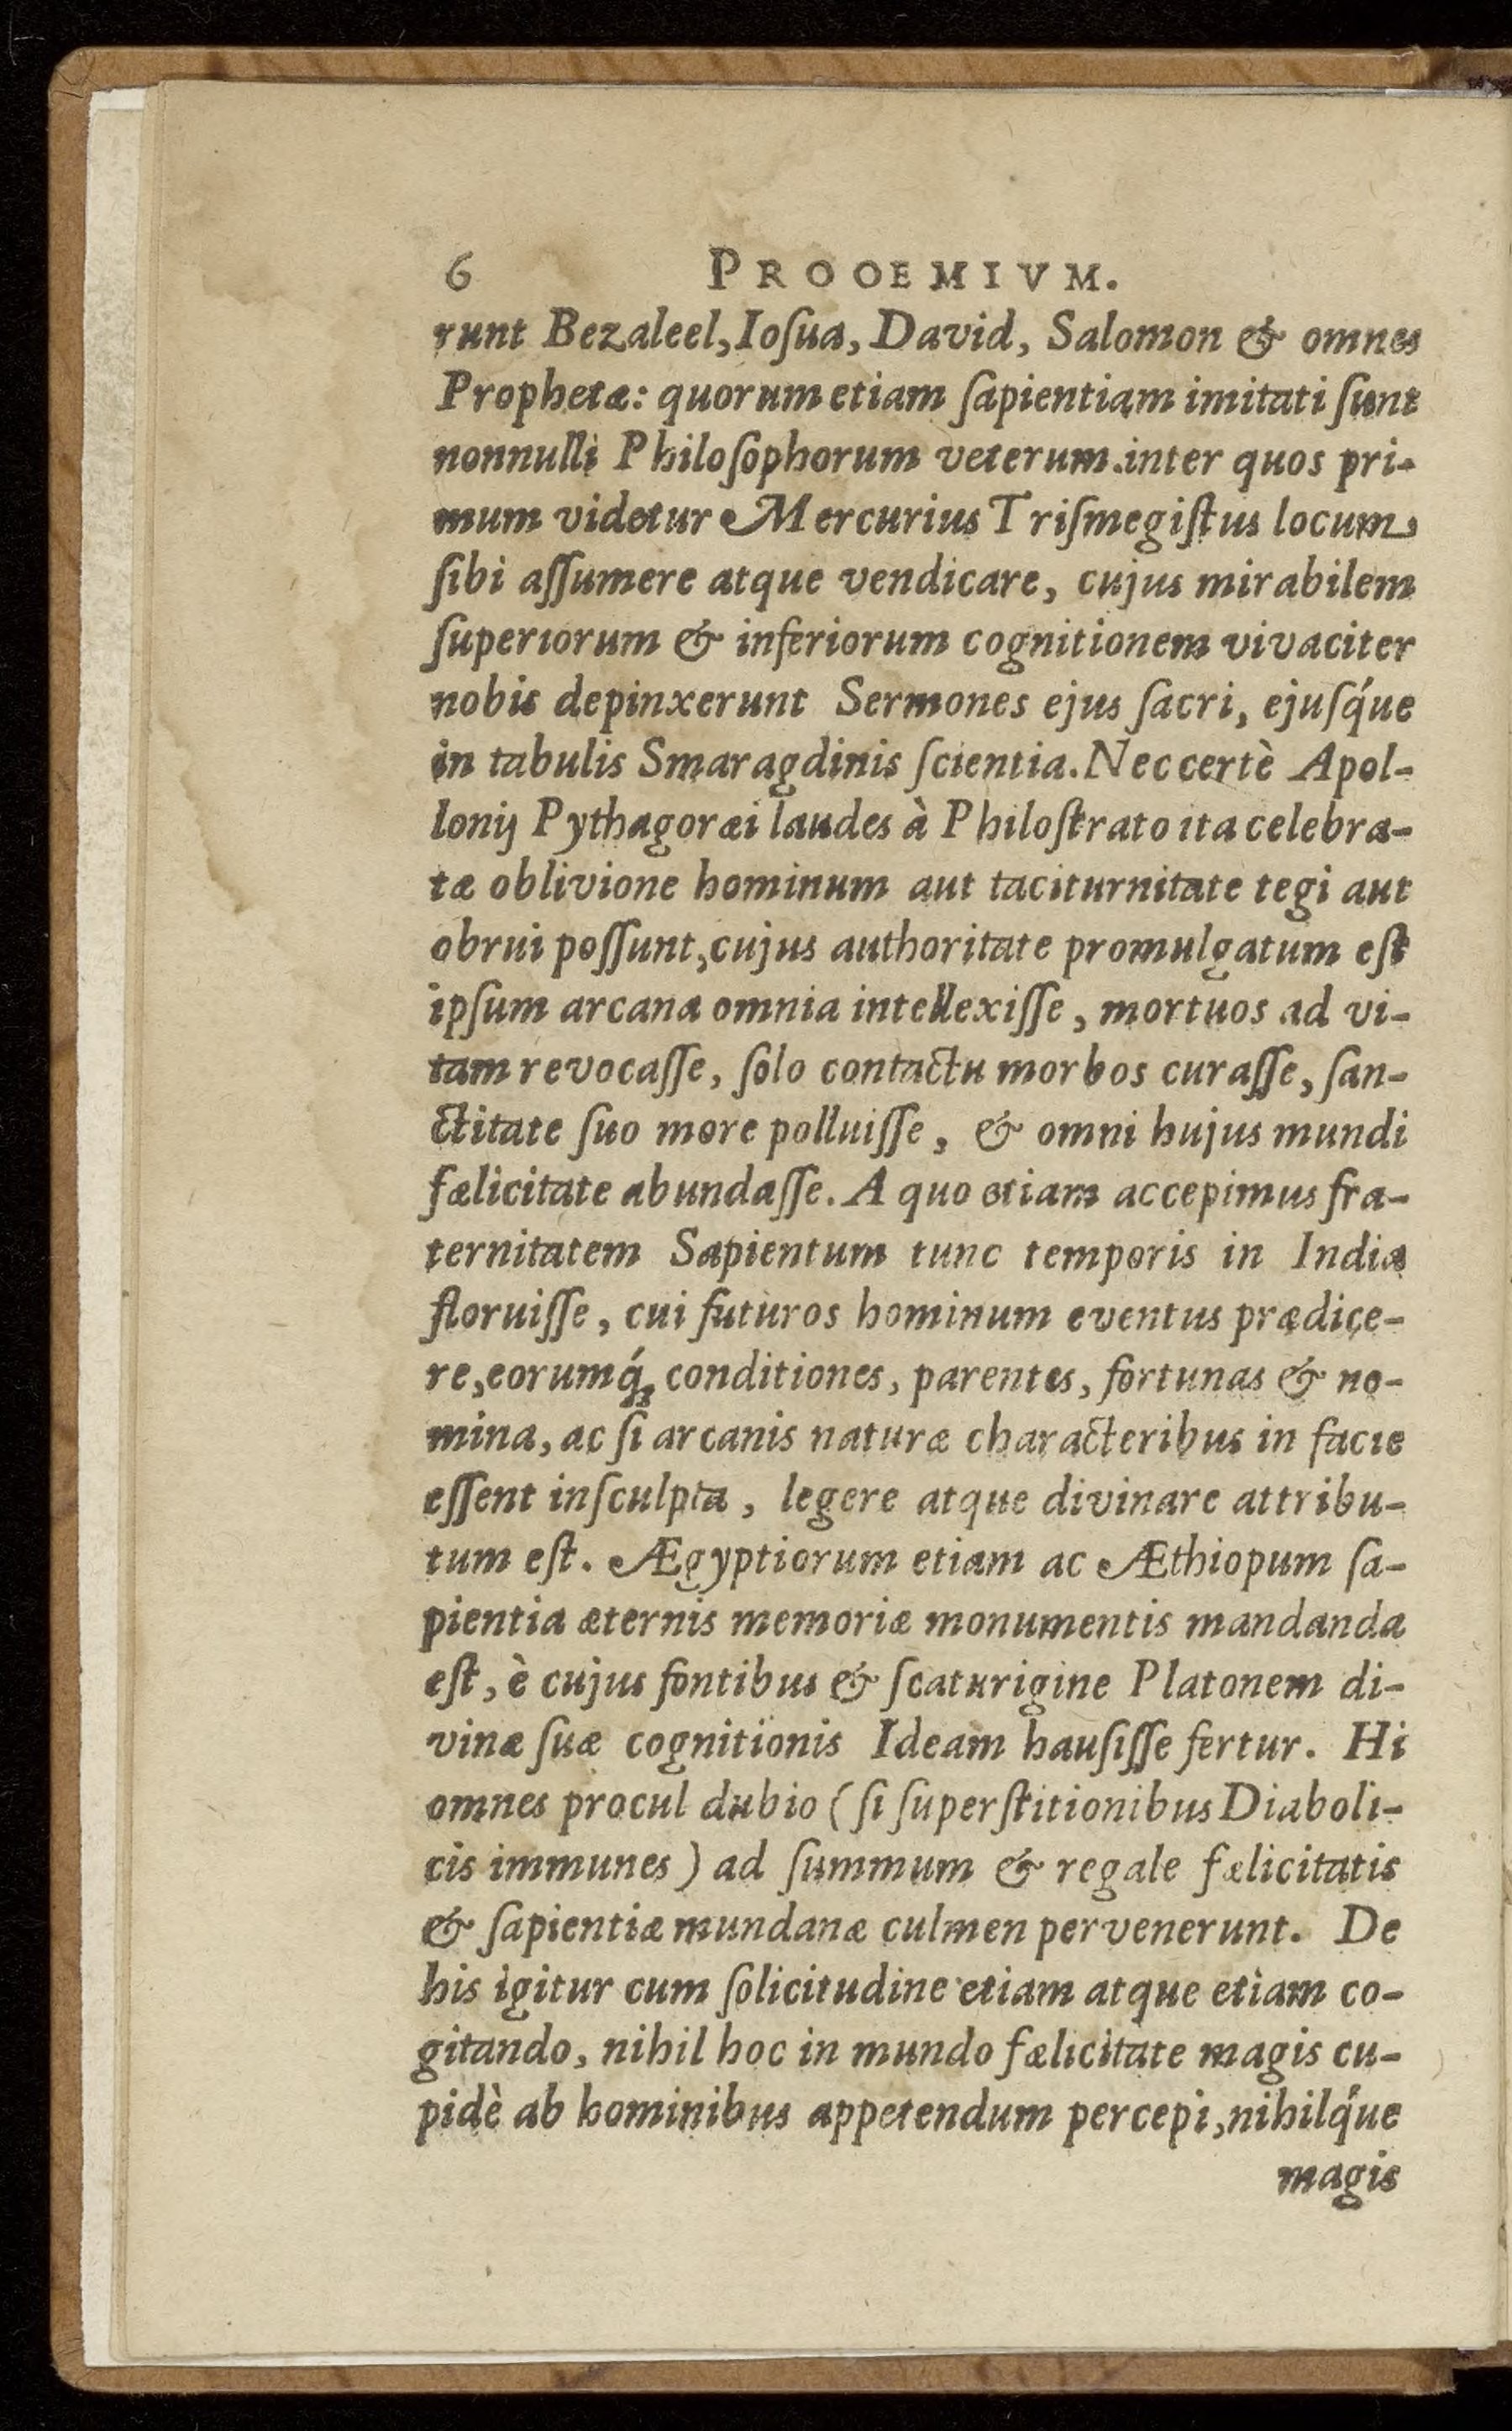 6 PROOEMIVM.
runt Bezaleel, Ioſua, David, Salomon & omnes
Prophetæ: quorum etiam ſapientiam imitati ſunt
nonnulli Philoſophorum veterum. inter quos pri-
mum videtur Mercurius Triſmegiſtus locum
ſibi aſſumere atque vendicare, cujus mirabilem
ſuperiorum & inferiorum cognitionem vivaciter
nobis depinxerunt Sermones ejus ſacri, ejuſq́ue
in tabulis Smaragdinis ſcientia. Nec certè Apol-
lonij Pythagoræi laudes à Philoſtrato ita celebra-
tæ oblivione hominum aut taciturnitate tegi aut
obrui poſſunt, cujus authoritate promulgatum eſt
ipſum arcana omnia intellexiſſe, mortuos ad vi-
tam revocaſſe, ſolo contactu morbos curaſſe, ſan-
ctitate ſuo more polluiſſe, & omni hujus mundi
fælicitate abundaſſe. A quo etiam accepimus fra-
ternitatem Sapientum tunc temporis in India
floruiſſe, cui futuros hominum eventus prædice-
re, eorumq́ꝫ conditiones, parentes, fortunas & no-
mina, ac ſi arcanis naturæ characteribus in facie
eſſent inſculpta, legere atque divinare attribu-
tum eſt. Ægyptiorum etiam ac Æthiopum ſa-
pientia æternis memoriæ monumentis mandanda
eſt, è cujus fontibus & ſcaturigine Platonem di-
vinæ ſuæ cognitionis Ideam hauſiſſe fertur. Hi
omnes procul dubio (ſi ſuperſtitionibus Diaboli-
cis immunes) ad ſummum & regale fælicitatis
& ſapientiæ mundanæ culmen pervenerunt. De
his igitur cum ſolicitudine etiam atque etiam co-
gitando, nihil hoc in mundo fælicitate magis cu-
pidè ab hominibus appetendum percepi, nihilq́ue
magis